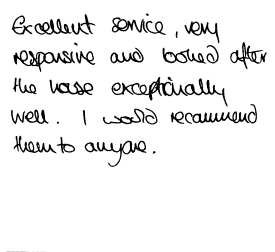 Excellent service, very
responsive and looked after
the house exceptionally
well. I would recommend
them to anyone.